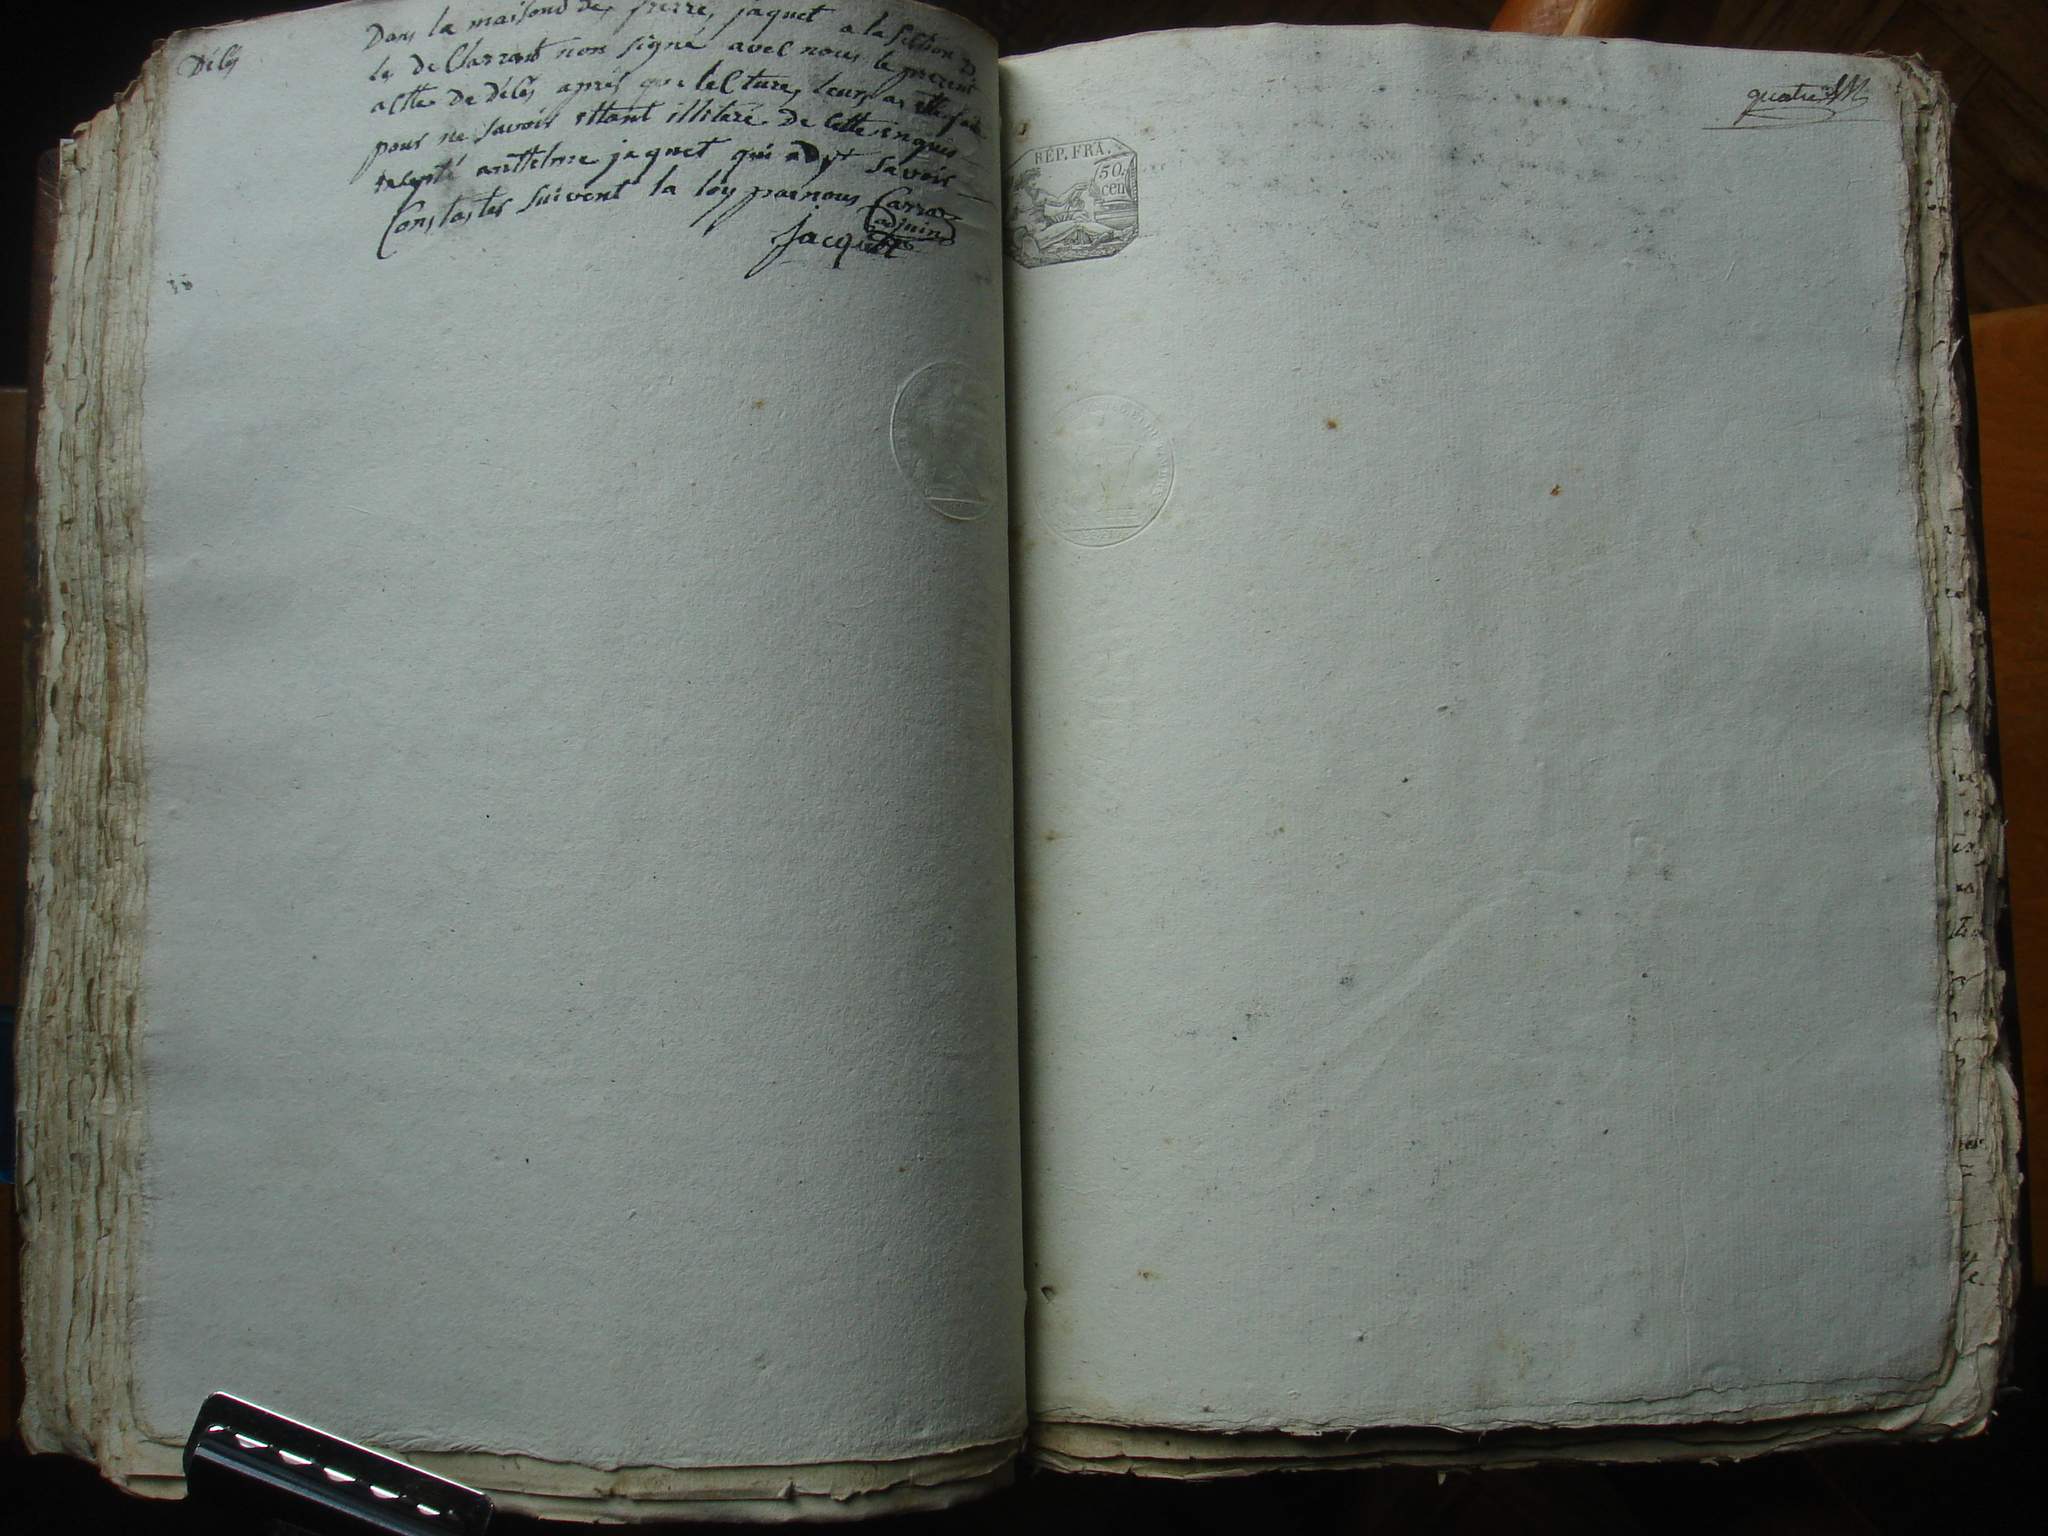 Décès
Dans la maisond des frerre, jaquet a la section D
le declarrant non signé avec nous le present
actte De Décès après que lecture, leurs a ette fait
pour ne savoir ettant illitéré De cette inques
excepté anttelme jaquet qui a dyt savoir
Constattés suivent la loy parnous Carraz
adjuin
Jacquet
quatre
RÉP. FRA.
50.
cen